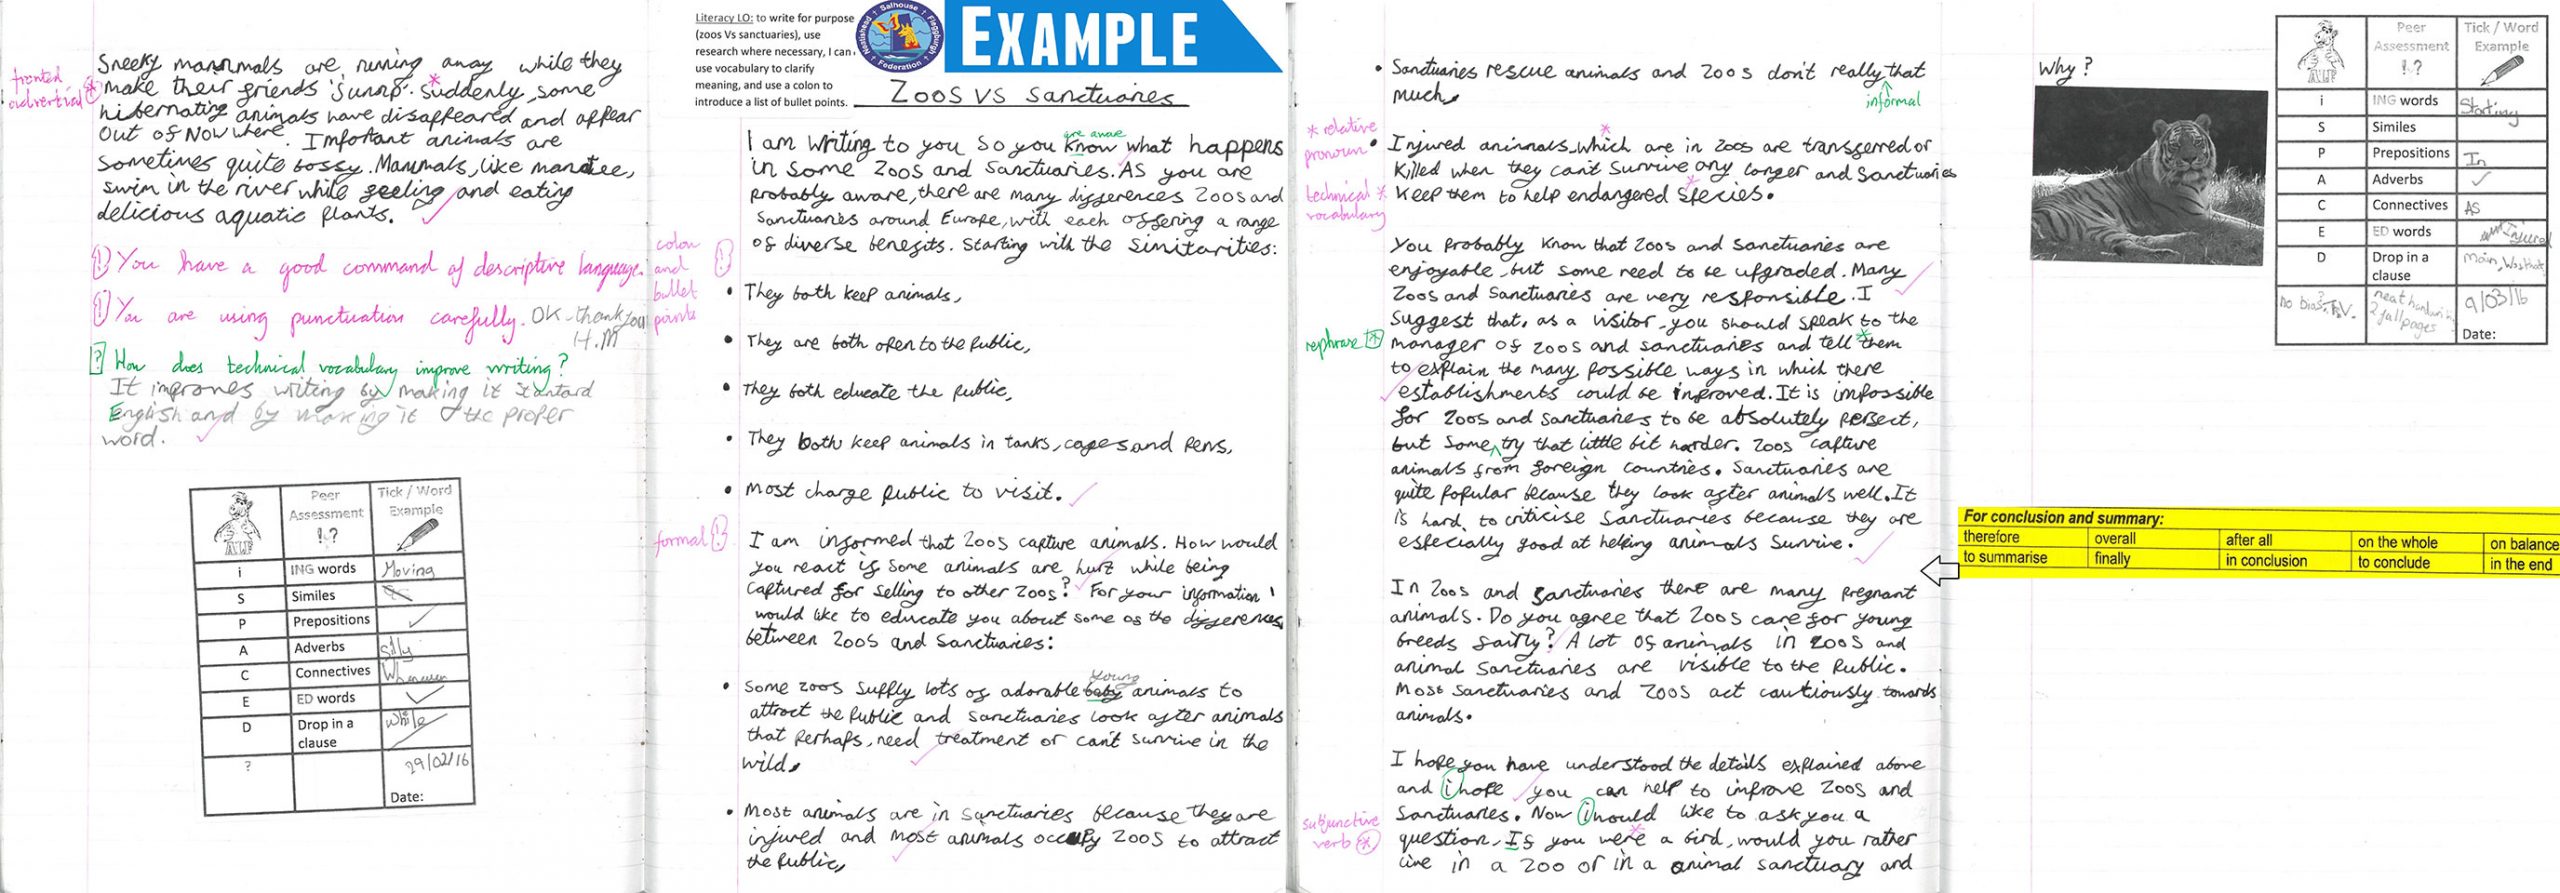 Sneeky mammals are runing away while they
fronted
adverbial
make their friends jump. Suddenly, some
hibernating animals have disappeared and appear
out of Nowhere. Important animals are
sometimes quite bossy. Mammals, like manatee,
swim in the river while feeling and eating
delicious aquatic plants.
! You have a good command of descriptive language.
! You are using punctuation carefully. OK - thank you
H.M
? How does technical vocabulary improve writing?
It improves writing by making it stantard
English and by making it the proper
word.
AVLIF
Peer Assessment ! ?
Tick / Word Example
i ING words Moving
S Similes
P Prepositions
A Adverbs Silly
C Connectives Whenever
E ED words
D Drop in a clause while
? 29/02/16
Date:
Literacy LO: to write for purpose
(zoos Vs sanctuaries), use
research where necessary, I can
use vocabulary to clarify
meaning, and use a colon to
introduce a list of bullet points.
Neatishead Salhouse Fleggburgh Federation
EXAMPLE
Zoos vs Sanctuaries
are aware
I am writing to you so you know what happens
in some Zoos and Sanctuaries. As you are
probably aware, there are many differences Zoos and
Sanctuaries around Europe, with each offering a range
of diverse benefits. Starting with the similarities:
colon
and
bullet
points
!
• They both keep animals,
• They are both open to the public,
• They both educate the public,
• They both keep animals in tanks, cages and pens,
• Most charge public to visit.
formal !
I am informed that Zoos capture animals. How would
you react if some animals are hurt while being
captured for selling to other Zoos? For your information I
would like to educate you about some of the differences
between Zoos and Sanctuaries:
young
• Some zoos supply lots of adorable baby animals to
attract the public and Sanctuaries look after animals
that perhaps, need treatment or can't survive in the
wild,
• Most animals are in sanctuaries because they are
injured and most animals occupy Zoos to attract
the public,
• Sanctuaries rescue animals and Zoos don't really that
much,
informal
* relative
pronoun
• Injured animals which are in zoos are transferred or
killed when they can't survive any longer and sanctuaries
technical *
vocabulary
keep them to help endangered species.
You probably know that Zoos and Sanctuaries are
enjoyable, but some need to be upgraded. Many
Zoos and Sanctuaries are very responsible. I
suggest that, as a visitor, you should speak to the
rephrase *
manager of zoos and sanctuaries and tell them
to explain the many possible ways in which there
establishments could be improved. It is impossible
for Zoos and Sanctuaries to be absolutely perfect,
but some try that little bit harder. Zoos capture
animals from foreign countries. Sanctuaries are
quite popular because they look after animals well. It
is hard, to criticise Sanctuaries because they are
especially good at helping animals survive.
In Zoos and Sanctuaries there are many pregnant
animals. Do you agree that Zoos care for young
breeds fairly? A lot of animals in zoos and
animal Sanctuaries are visible to the public.
Most Sanctuaries and Zoos act cautiously towards
animals.
I hope you have understood the details explained above
and i hope you can help to improve Zoos and
Sanctuaries. Now i would like to ask you a
subjunctive
verb *
question. If you were a bird, would you rather
live in a Zoo or in a animal sanctuary and
Why?
AVLIF
Peer Assessment ! ?
Tick / Word Example
i ING words Starting
S Similes
P Prepositions In
A Adverbs
C Connectives As
E ED words Injured
D Drop in a clause
neat handwriting
2 full pages
9/03/16
Date:
For conclusion and summary:
therefore overall after all on the whole on balance
to summarise finally in conclusion to conclude in the end